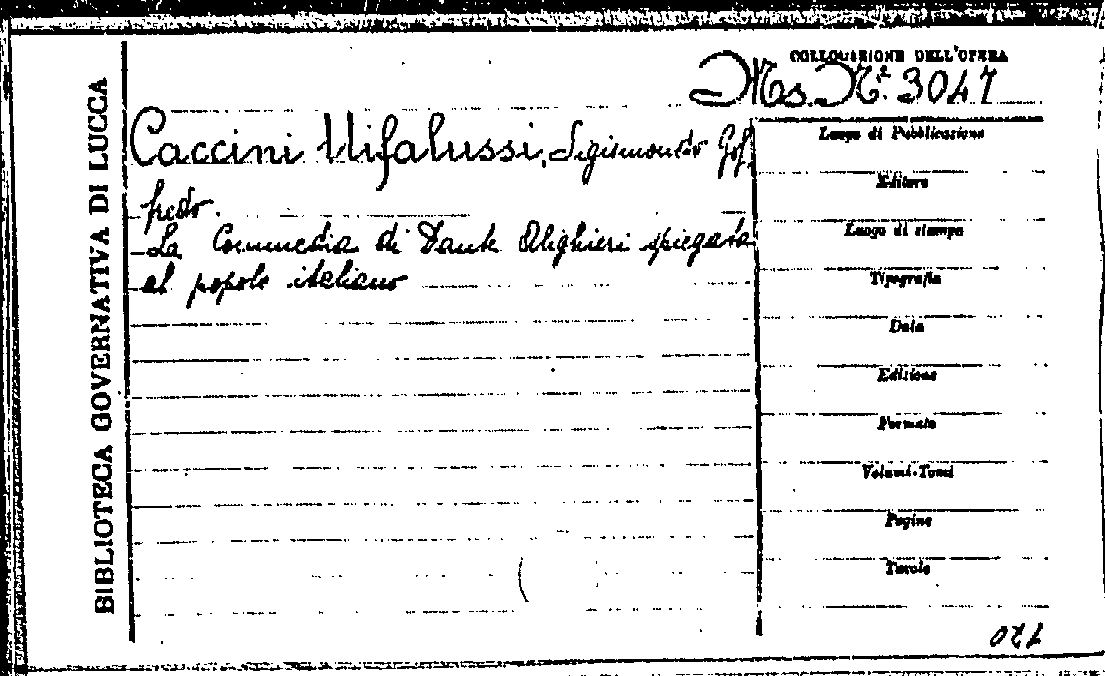 BIBLIOTECA GOVERNATIVA DI LUCCA
COLLOCAZIONE DELL'OPERA
Ms. Nº 3047
Caccini Uifalussi, Sigismondo Gof
fredo.
La Commedia di Dante Alighieri spiegata
al popolo italiano
Luogo di Pubblicazione
Editore
Luogo di stampa
Tipografia
Data
Edizione
Formato
Volumi-Tomi
Pagine
Tavole